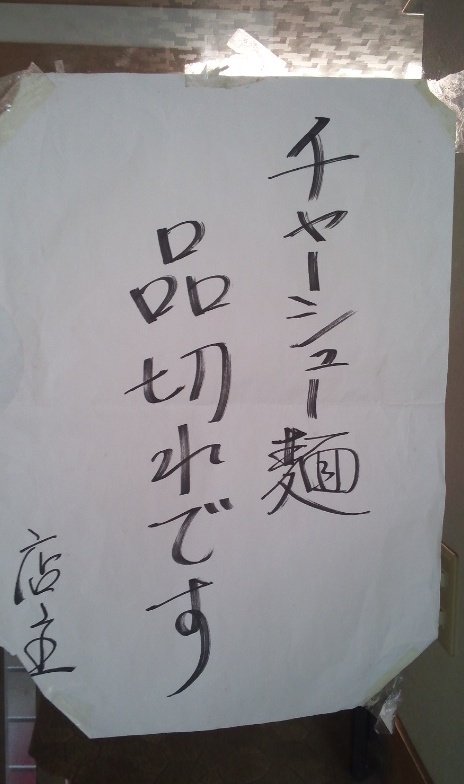 チャーシュー麺
品切れです
店主